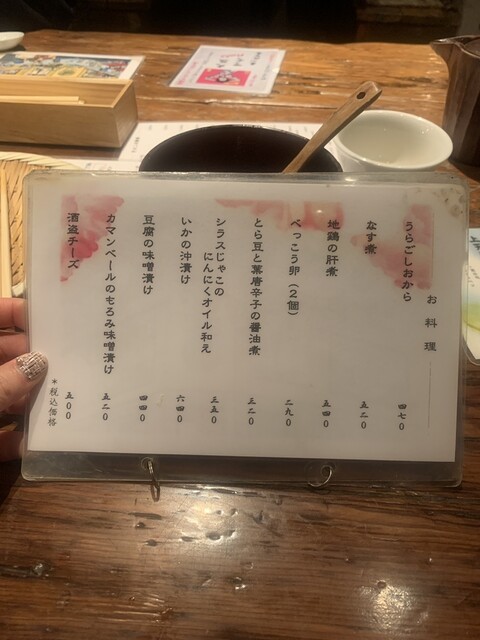 お料理
うらごしおから 四七〇
なす煮 五二〇
地鶏の肝煮 五四〇
べっこう卵(2個) 二九〇
とら豆と葉唐辛子の醤油煮 三二〇
シラスじゃこの
にんにくオイル和え 三五〇
いかの沖漬け 六四〇
豆腐の味噌漬け 四四〇
カマンベールのもろみ味噌漬け 五二〇
酒盗チーズ 五〇〇
*税込価格